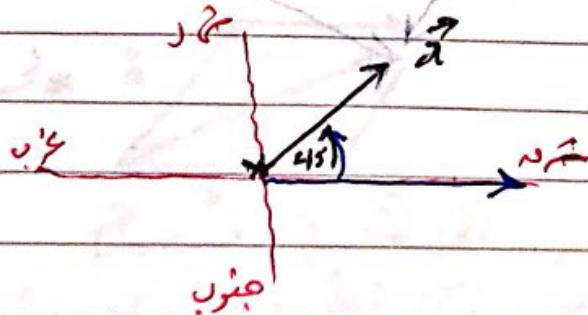 شمال
a⃗
غرب
45°
شرق
جنوب